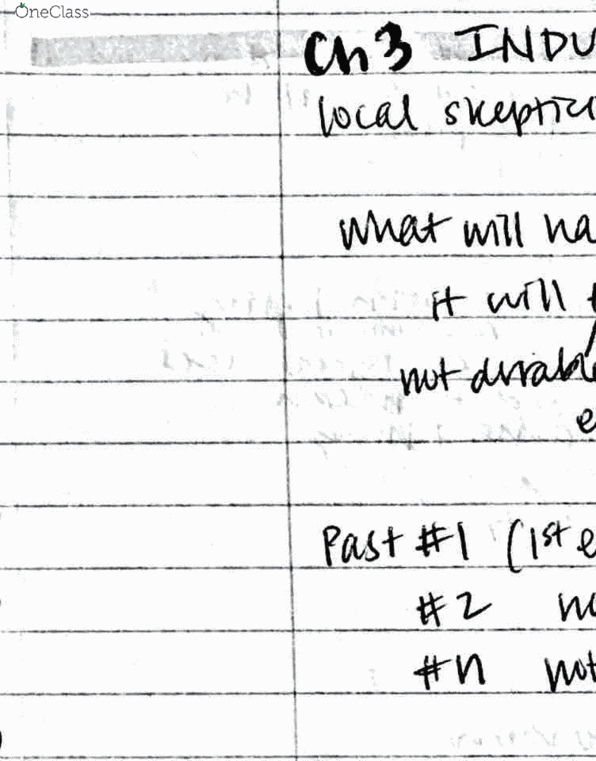 OneClass
Ch 3 INDU
local skeptici
what will ha
it will
not durabl
e
Past #1 (1st e
#2 no
#n not